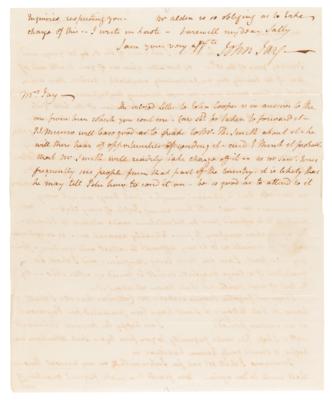 Inquiries respecting you. Mr Alden is so obliging as to take
charge of this – I write in haste – Farewell my dear Sally
I am your very affte
John Jay –
Mrs Jay –
The enclosed letter to John Cooper is in answer to the
one from him which you sent me – Care shd be taken to forward it –
Mr Munro will be so good as to speak to Mr. about it & he
will then hear of opportunities of sending it – and I think it probable
that Mr will readily take charge of it – as he
frequently sees people from that part of the Country – it is likely that
he may tell John how to send it on – be so good as to attend to it